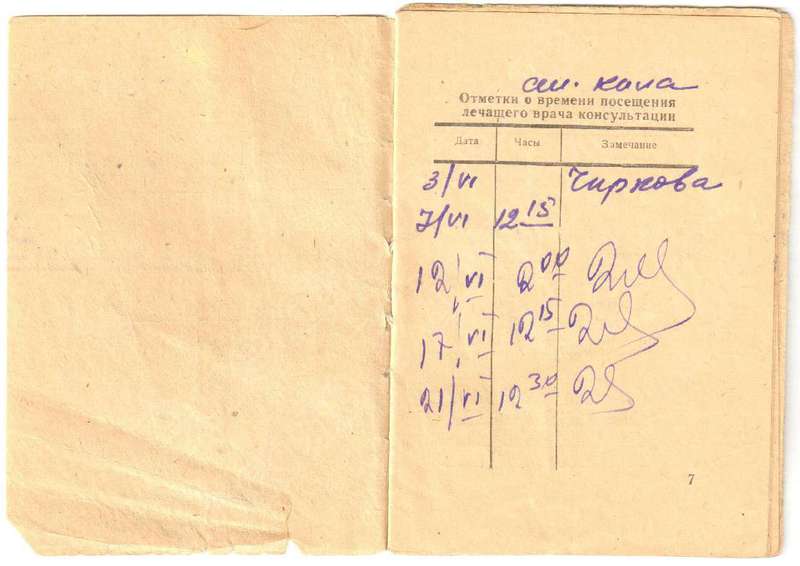 Отметки о времени посещения
лечащего врача консультации
Дата Часы Замечание
3/VI Чиркова
7/VI 12 15
12/VI 2 00
17/VI 12 15
21/VI 12 30
7